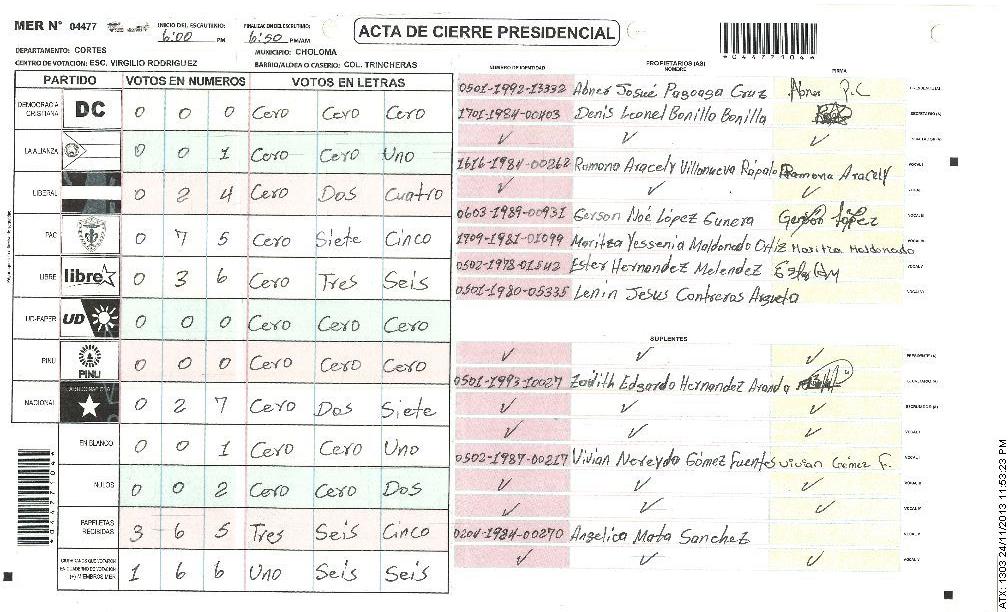 MER N° 04477
INICIO DEL ESCRUTINIO: 6:00 PM
FINALIZACION DEL ESCRUTINIO: 6:50 PM/AM
ACTA DE CIERRE PRESIDENCIAL
*04477104*
DEPARTAMENTO: CORTES
MUNICIPIO: CHOLOMA
CENTRO DE VOTACION: ESC. VIRGILIO RODRIGUEZ
BARRIO/ALDEA O CASERIO: COL. TRINCHERAS
PARTIDO VOTOS EN NUMEROS VOTOS EN LETRAS
DEMOCRACIA CRISTIANA DC 0 0 0 Cero Cero Cero
LA ALIANZA 0 0 1 Cero Cero Uno
LIBERAL 0 2 4 Cero Dos Cuatro
PAC 0 7 5 Cero Siete Cinco
LIBRE libre 0 3 6 Cero Tres Seis
UD-FAPER UD 0 0 0 Cero Cero Cero
PINU PINU 0 0 0 Cero Cero Cero
NACIONAL 0 2 7 Cero Dos Siete
EN BLANCO 0 0 1 Cero Cero Uno
NULOS 0 0 2 Cero Cero Dos
PAPELETAS RECIBIDAS 3 6 5 Tres Seis Cinco
CIUDADANOS QUE VOTARON EN CUADERNO DE VOTACION (+) MIEMBROS MER 1 6 6 Uno Seis Seis
NUMERO DE IDENTIDAD PROPIETARIOS (AS) NOMBRE FIRMA
0501-1992-13332 Abner Josué Pagoaga Cruz Abner P.C PRESIDENTE (A)
1701-1984-00403 Denis Leonel Bonilla Bonilla SECRETARIO (A)
✓ ✓ ✓ ESCRUTADOR (A)
1616-1984-00262 Ramona Aracely Villanueva Rápalo Ramona Aracely VOCAL I
✓ ✓ ✓ VOCAL II
0603-1989-00931 Gerson Noé López Gunera Gerson López VOCAL III
1709-1981-01099 Maritza Yessenia Maldonado Ortiz Maritza Maldonado VOCAL IV
0502-1978-01542 Ester Hernandez Melendez VOCAL V
0501-1980-05335 Lenin Jesus Contreras Argueta VOCAL VI
SUPLENTES
✓ ✓ ✓ PRESIDENTE (A)
0501-1993-10027 Zadith Edgardo Hernandez Aranda SECRETARIO (A)
✓ ✓ ✓ ESCRUTADOR (A)
✓ ✓ ✓ VOCAL I
0502-1987-00217 Vivian Nereyda Gómez Fuentes Vivian Gómez F. VOCAL II
✓ ✓ ✓ VOCAL III
✓ ✓ ✓ VOCAL IV
0204-1984-00270 Angelica Mata Sanchez VOCAL V
✓ ✓ ✓
*04477104*
ATX: 1303 24/11/2013 11:53:23 PM